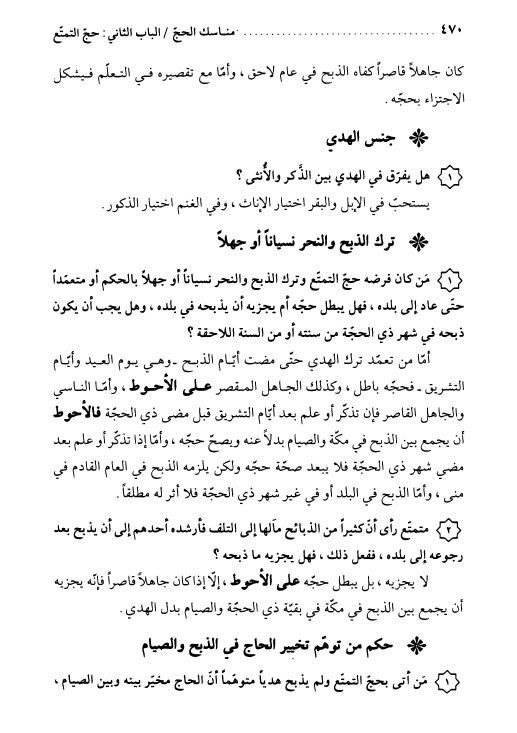 ٤٧٠ ................................... مناسك الحجّ / الباب الثاني: حجّ التمتّع
كان جاهلاً قاصراً كفاه الذبح في عام لاحق ، وأمّا مع تقصيره في التعلّم فيشكل
الاجتزاء بحجّه .
جنس الهدي
١ هل يفرّق في الهدي بين الذَّكر والأُنثى ؟
يستحبّ في الإبل والبقر اختيار الإناث ، وفي الغنم اختيار الذكور.
ترك الذبح والنحر نسياناً أو جهلاً
١ مَن كان فرضه حجّ التمتّع وترك الذبح والنحر نسياناً أو جهلاً بالحكم أو متعمّداً
حتّى عاد إلى بلده ، فهل يبطل حجّه أم يجزيه أن يذبحه في بلده ، وهل يجب أن يكون
ذبحه في شهر ذي الحجّة من سنته أو من السنة اللاحقة ؟
أمّا من تعمّد ترك الهدي حتّى مضت أيّام الذبح ـ وهي يوم العيد وأيّام
التشريق ـ فحجّه باطل ، وكذلك الجاهل المقصر على الأحوط ، وأمّا الناسي
والجاهل القاصر فإن تذكّر أو علم بعد أيّام التشريق قبل مضى ذي الحجّة فالأحوط
أن يجمع بين الذبح في مكّة والصيام بدلاً عنه ويصحّ حجّه ، وأمّا إذا تذكّر أو علم بعد
مضي شهر ذي الحجّة فلا يبعد صحّة حجّه ولكن يلزمه الذبح في العام القادم في
منى ، وأمّا الذبح في البلد أو في غير شهر ذي الحجّة فلا أثر له مطلقاً .
٢ متمتّع رأى أنّ كثيراً من الذبائح مآلها إلى التلف فأرشده أحدهم إلى أن يذبح بعد
رجوعه إلى بلده ، ففعل ذلك ، فهل يجزيه ما ذبحه ؟
لا يجزيه ، بل يبطل حجّه على الأحوط ، إلّا إذا كان جاهلاً قاصراً فإنّه يجزيه
أن يجمع بين الذبح في مكّة في بقيّة ذي الحجّة والصيام بدل الهدي .
حكم من توهّم تخيير الحاج في الذبح والصيام
١ مَن أتى بحجّ التمتّع ولم يذبح هدياً متوهّماً أنّ الحاج مخيّر بينه وبين الصيام ،